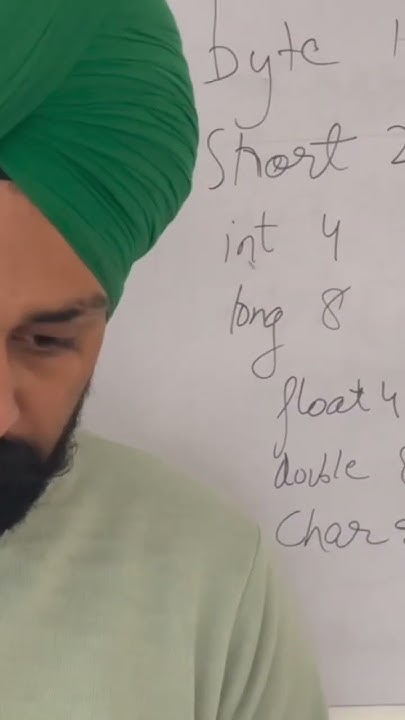 byte 1
Short 2
int 4
long 8
float 4
double 8
Char